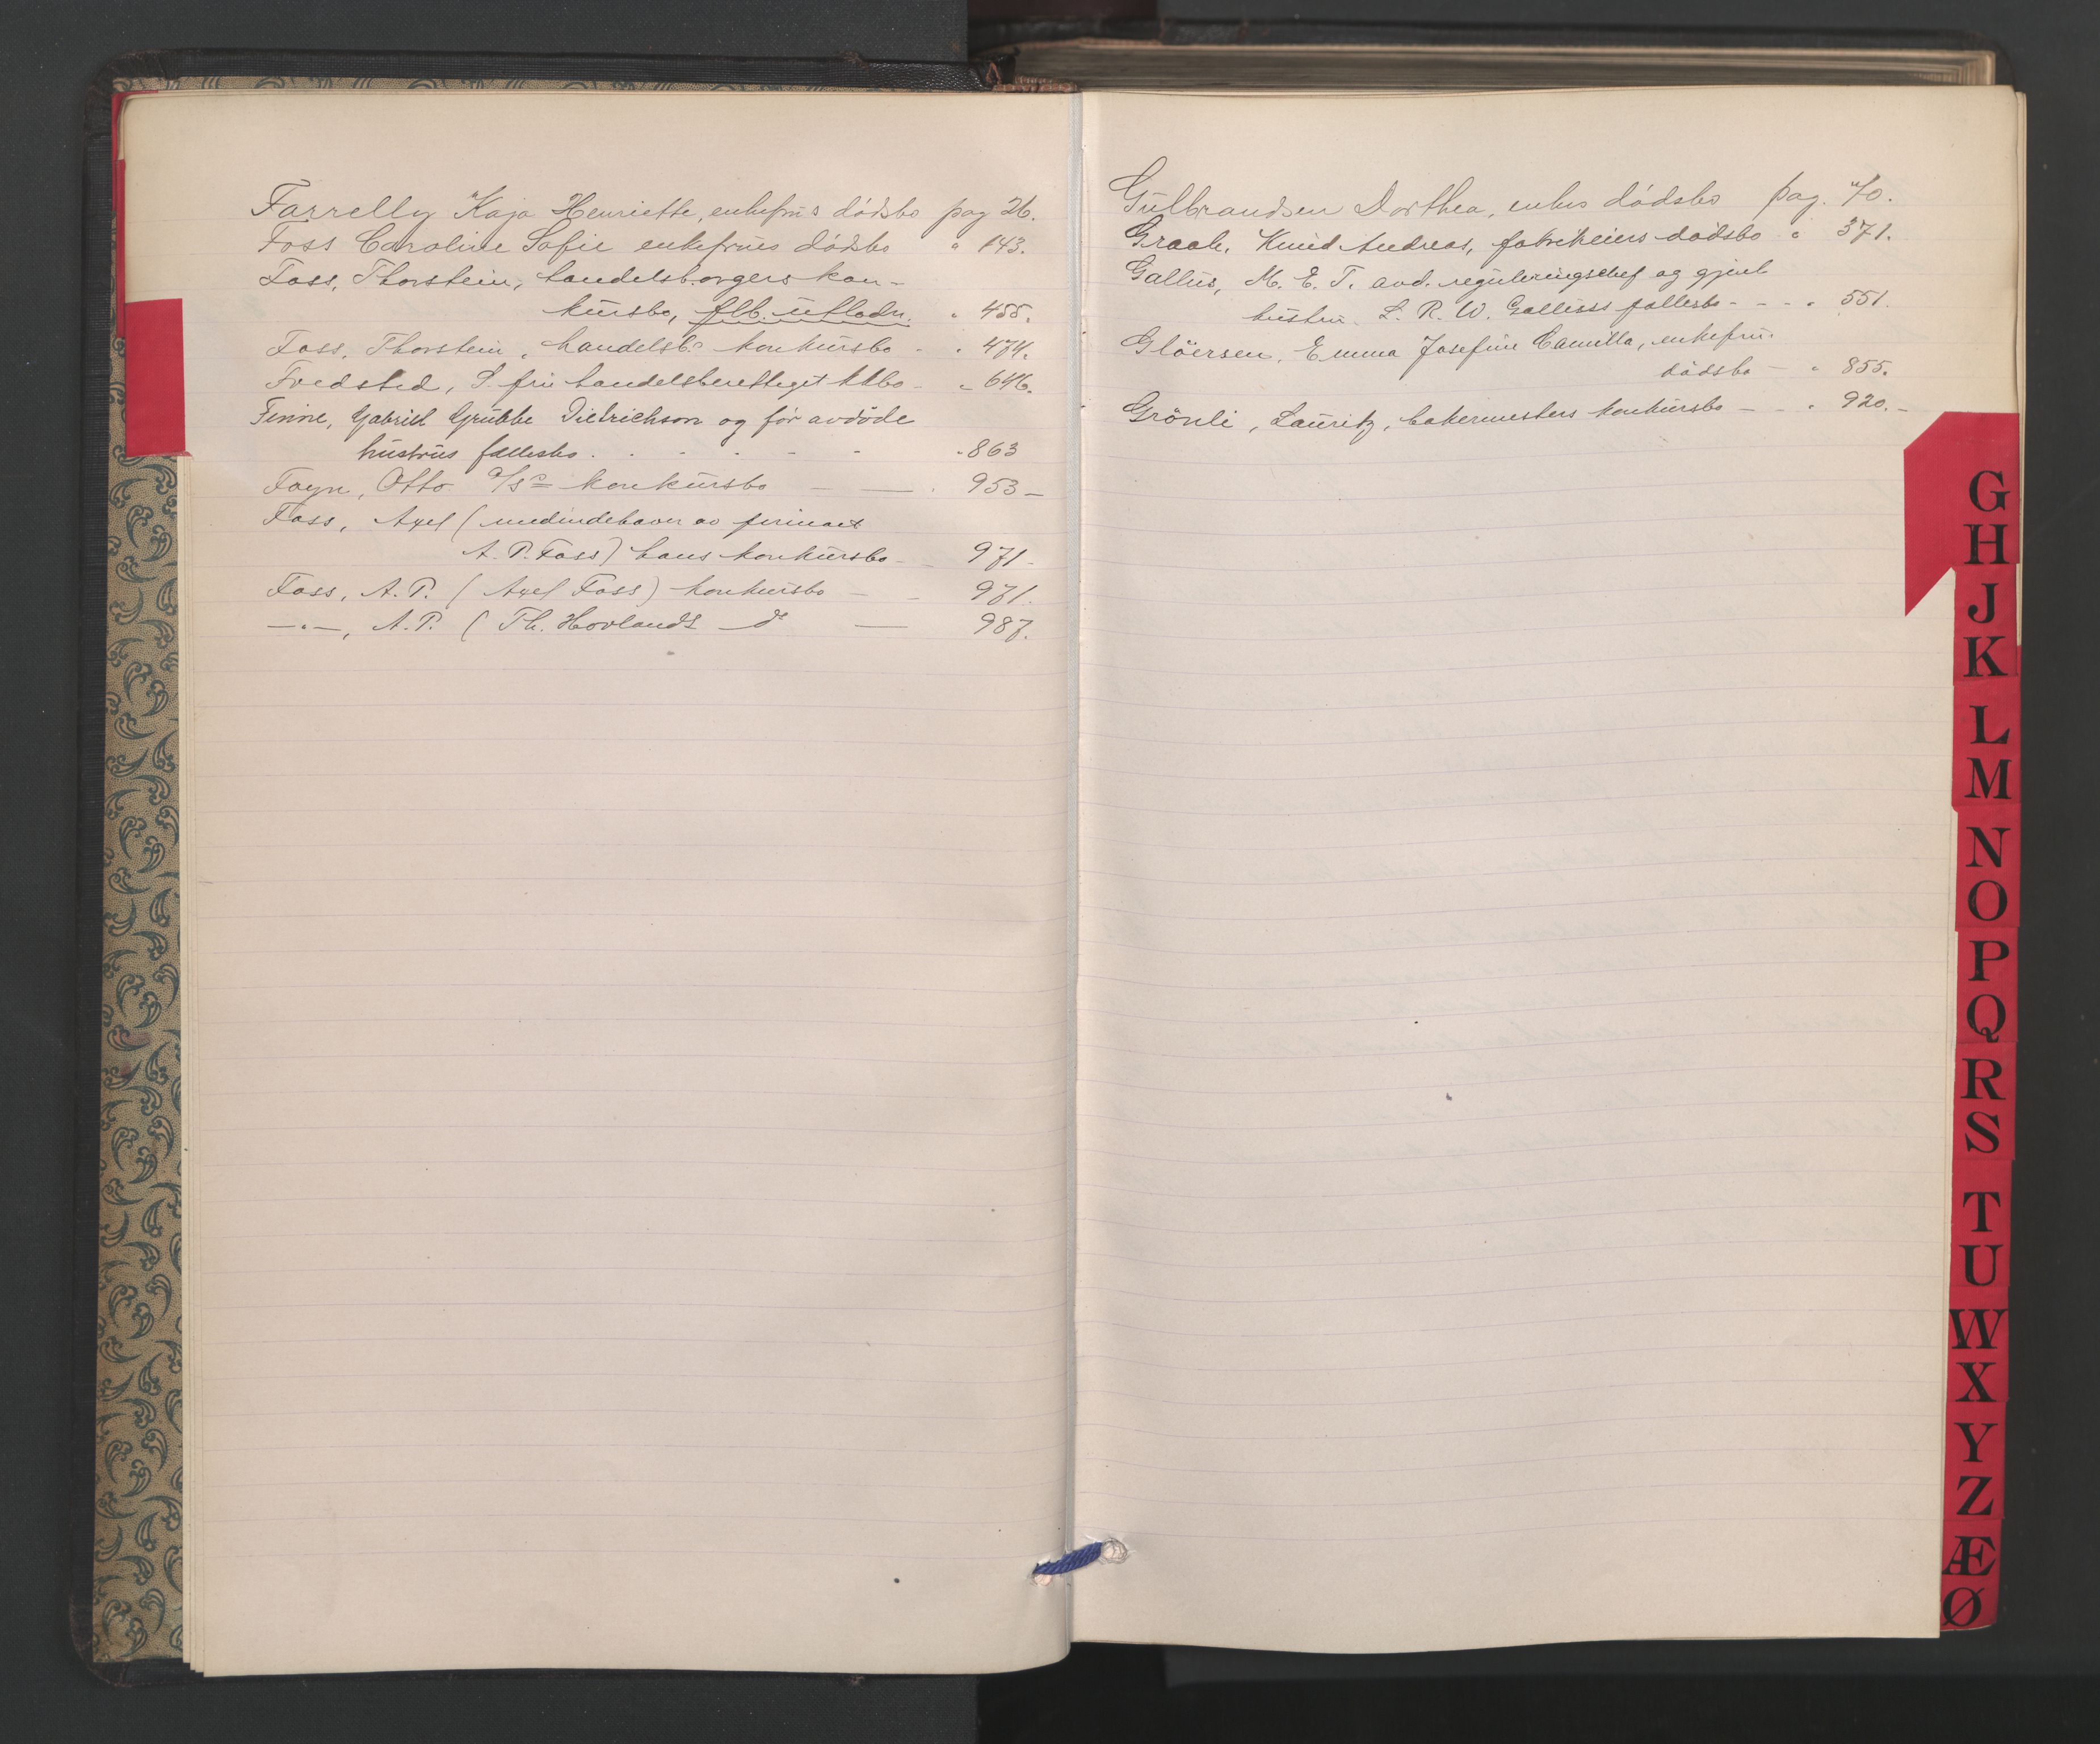 Farrelly Kaja Henriette, enkefrus dødsbo pag 26.
Foss Caroline Sofie enkefrues dødsbo " 143.
Foss, Thorstein, handelsborgers kon-
kursbo, flb. utladn. " 455.
Foss, Thorstein, handelsb.s konkursbo - " 474.
Fredsted, S. fru handelsberettiget kkbo - " 646.
Finne, Gabriel Grubbe Dietrichson og før avdöde
hustrus fællesbo . - - - - - " 863
Foyn, Otto A/S konkursbo — " 953 -
Foss, Axel (medindehaver av firmaet
A. P. Foss) hans konkursbo - 971 -
Foss, A. P. (Axel Foss) konkursbo — - 971.
—"—, A. P. (Th. Hovlands — d° — 987.
Gulbrandsen Dorthea, enkes dødsbo pag. 40.
Graah, Knud Andreas, fabrikeiers dødsbo " 371.
Gallus, M. E. T. avd. reguleringschef og gjenl.
hustru L. R. W. Galluss fællesbo - - - " 551.
Glöersen, Emma Josefine Camilla, enkefru.
dødsbo — " 855.
Grönli, Lauritz, bakermesters konkursbo — - " 920. -
G
H
J
K
L
M
N
O
P
Q
R
S
T
U
W
X
Y
Z
Æ
Ø